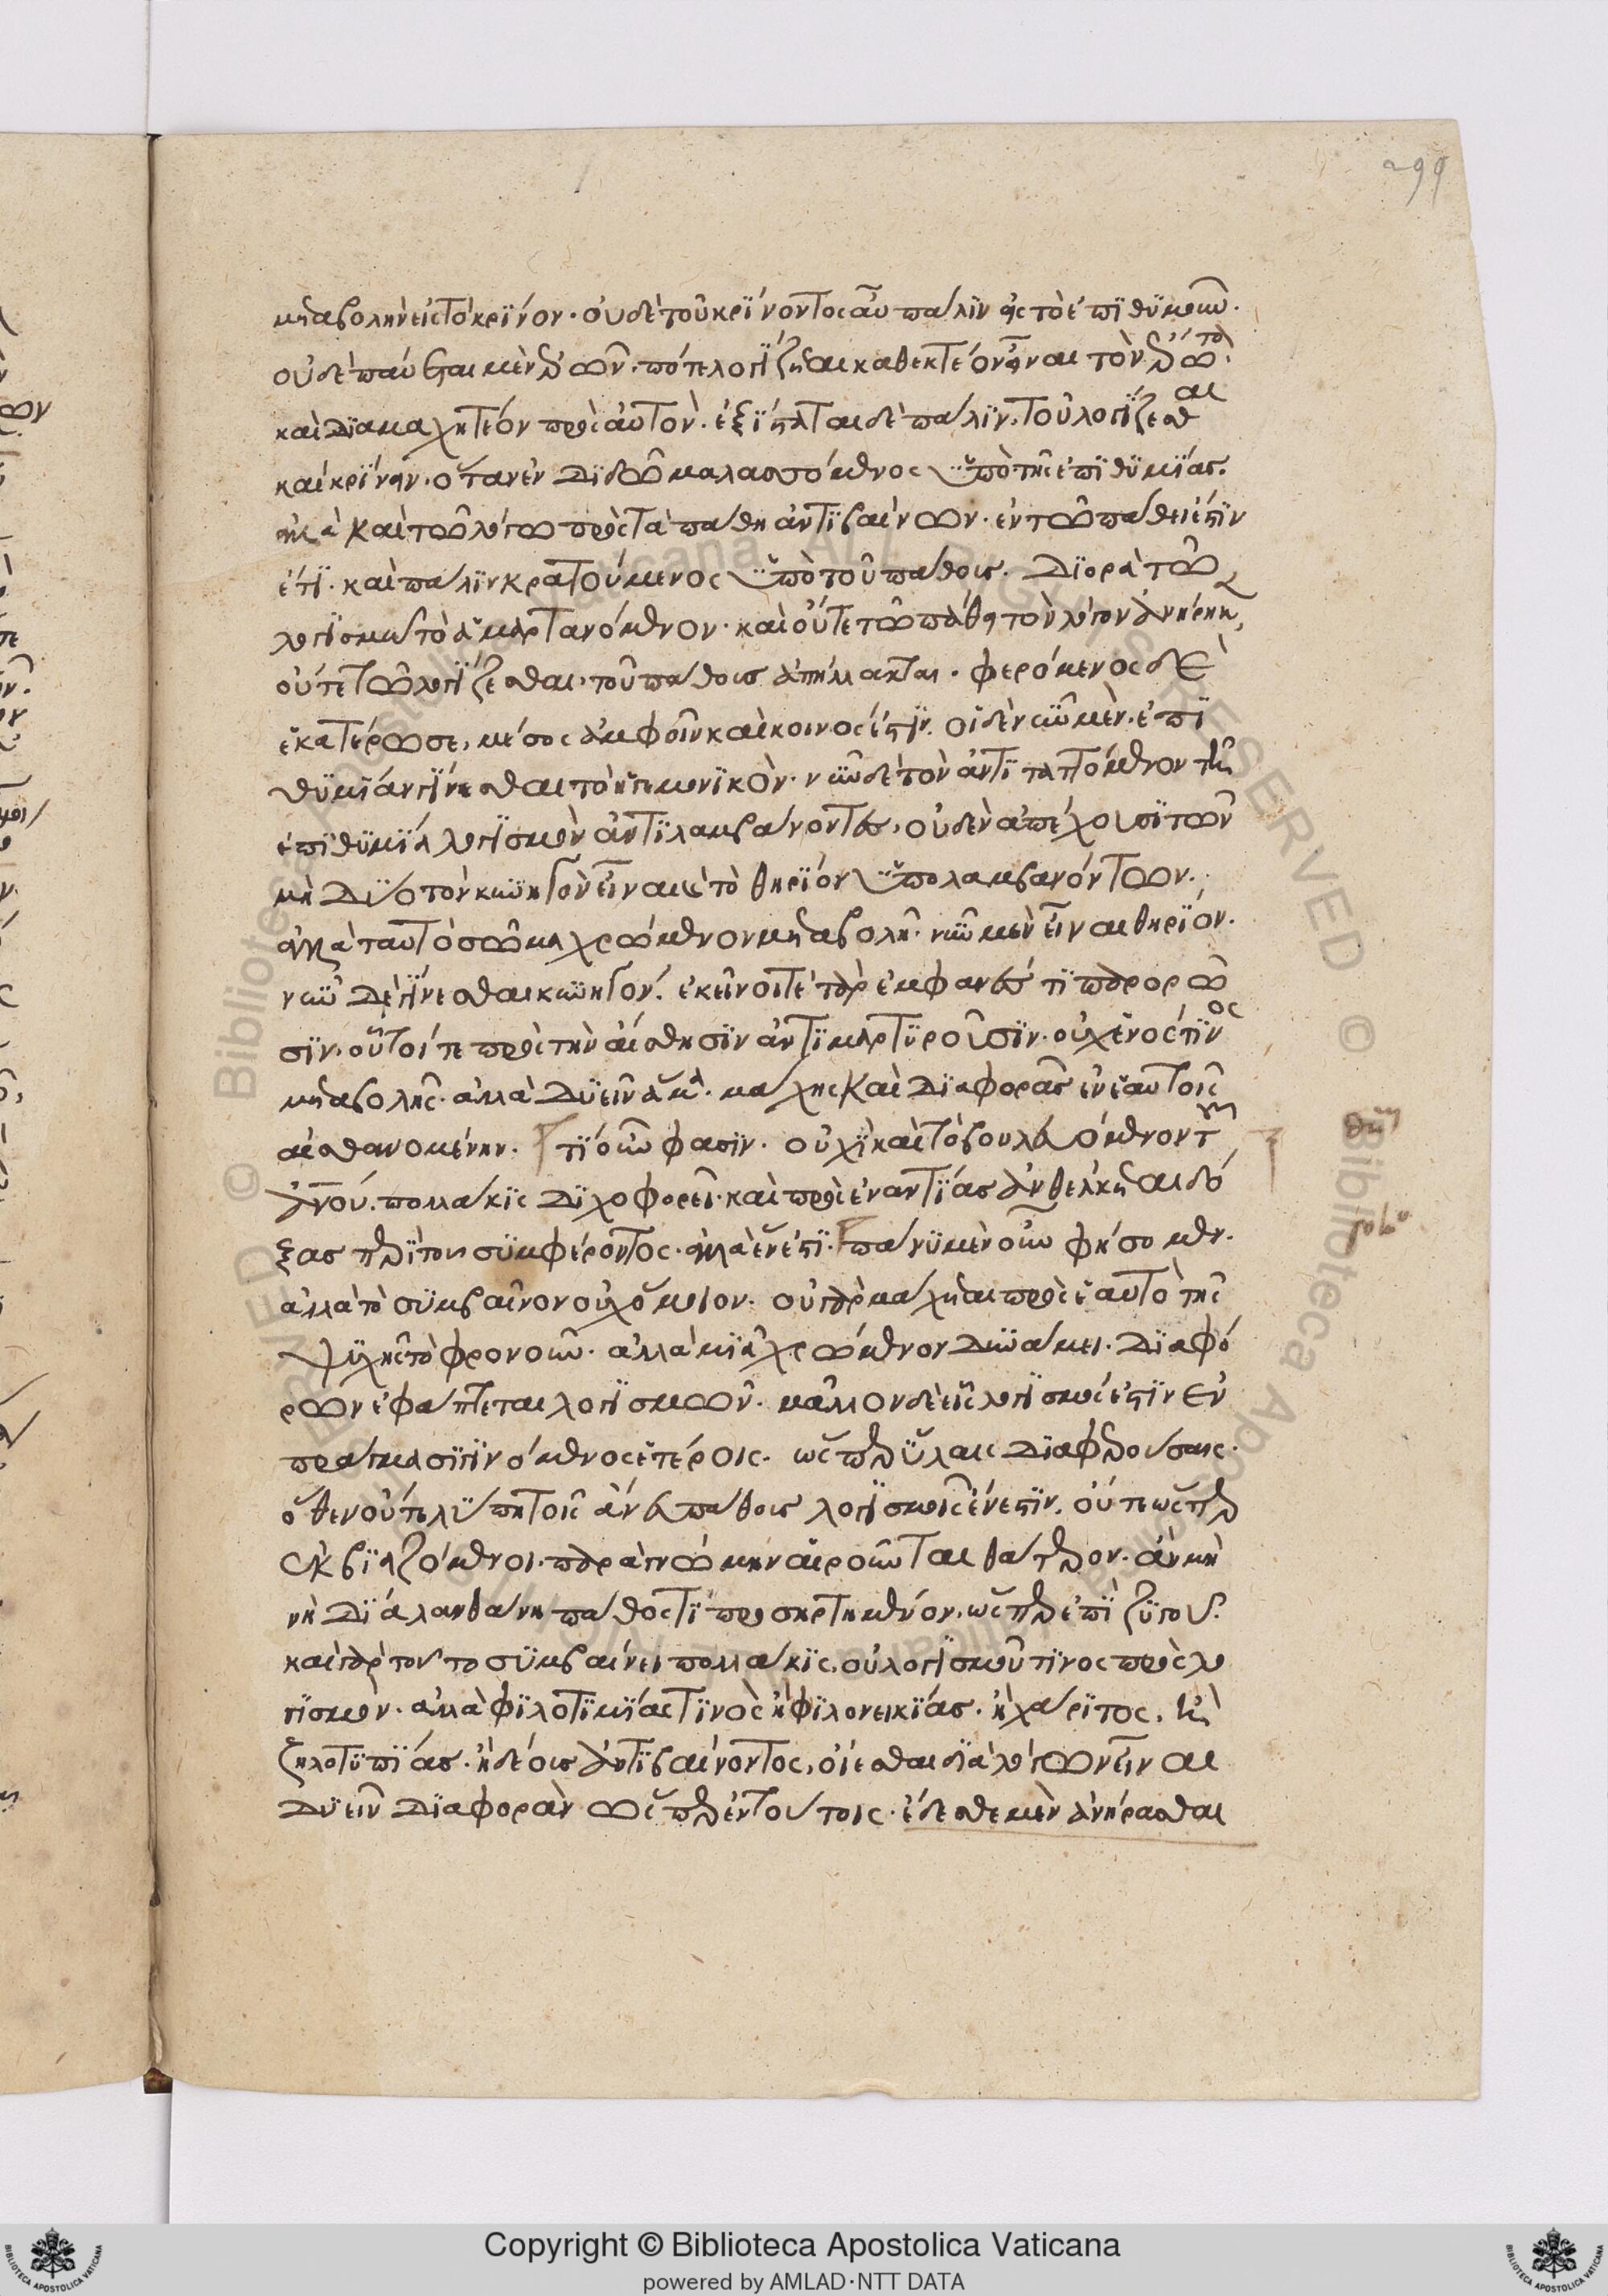 299
μεταβολὴν εἰς τὸ κρῖνον· οὐδὲ τοῦ κρίνοντος αὖ πάλιν εἰς τὸ ἐπιθυμοῦν·
οὐδὲ παύεται μὲν ἐρῶν· ὅτε λογίζεται καθεκτέον εἶναι τὸν ἔρωτα·
καὶ διαμαχητέον πρὸς αὐτὸν· ἐξίσταται δὲ πάλιν τοῦ λογίζεσθαι
καὶ κρίνειν· ὅταν ἐνδιδῷ μαλασσόμενος ὑπὸ τῆς ἐπιθυμίας·
ἀλλὰ καὶ τῷ λόγῳ πρὸς τὰ πάθη ἀντιβαίνων· ἐν τῷ πάθει ἐστὶν
ἔτι· καὶ πάλιν κρατούμενος ὑπὸ τοῦ πάθους· διορᾷ τῷ
λογισμῷ τὸ ἁμαρτανόμενον· καὶ οὔτε τῷ πάθει τὸν λόγον ἀνήρηκε,
οὔτε τῷ λογίζεσθαι, τοῦ πάθους ἀπήλλακται· φερόμενος δὲ
ἑκατέρωσε, μέσος ἀμφοῖν καὶ κοινός ἐστιν· οἱ δὲ νῦν μὲν ἐπι
θυμίαν γίνεσθαι τὸ ἡγεμονικὸν· νῦν δὲ τὸν ἀντιταττόμενον τῇ
ἐπιθυμίᾳ λογισμὸν ἀντιλαμβάνοντες, οὐδὲν ἀπέχουσι τῶν
μὴ δύο τὸν κυνηγὸν εἶναι καὶ τὸ θηρίον ὑπολαμβανόντων·
ἀλλὰ ταυτὸ σῶμα χρώμενον μεταβολῇ· νῦν μὲν εἶναι θηρίον·
νῦν δὲ γίνεσθαι κυνηγόν· ἐκεῖνοί τε γὰρ ἐμφανές τι παρορῶ
σιν· οὗτοί τε πρὸς τὴν αἴσθησιν ἀντιμαρτυροῦσιν· οὐχ ἑνός τινος
μεταβολῆς· ἀλλὰ δυεῖν ἅμα μάχης καὶ διαφορᾶς ἐν ἑαυτοῖς
αἰσθανομένην· τί οὖν φασιν· οὐχὶ καὶ τὸ βουλευόμενον τοῦ
ἀνθρώπου· πολλάκις διχοφορεῖ· καὶ πρὸς ἐναντίας ἀνθέλκεται δό
ξας περὶ τοῦ συμφέροντος· ἀλλὰ ἕν ἐστι· πάνυ μὲν οὖν φήσομεν·
ἀλλὰ τὸ συμβαῖνον οὐχ ὅμοιον· οὐ γὰρ μάχεται πρὸς ἑαυτὸ τῆς
ψυχῆς τὸ φρονοῦν· ἀλλὰ μιᾷ χρώμενον δυνάμει· διαφό
ρων ἐφάπτεται λογισμῶν· μᾶλλον δὲ εἷς λογισμός ἐστιν ἐν
πράγμασι γινόμενος ἑτέροις· ὡς περ ὕλαις διαφερούσαις·
ὅθεν οὔτε λύπη τοῖς ἄνευ πάθους λογισμοῖς ἔνεστιν· οὔτε ὥσπερ
ἐκβιαζόμενοι· παρὰ γνώμην αἱροῦνται θάτερον· ἂν μὴ
νὴ Δία λανθάνῃ πάθος τι προσηρτημένον, ὥσπερ ἐπὶ ζυγοῦ·
καὶ γὰρ τοῦτο συμβαίνει πολλάκις, οὐ λογισμοῦ τινος πρὸς λο
γισμὸν· ἀλλὰ φιλοτιμίας τινὸς ἢ φιλονεικίας· ἢ χάριτος, ἢ
ζηλοτυπίας· ἢ δέους ἀντιβαίνοντος, οἴεσθαι διὰ λόγων εἶναι
δυεῖν διαφορὰν ὥσπερ ἐν τούτοις· αἴδεσθεν μὲν ἀνήνασθαι
Copyright © Biblioteca Apostolica Vaticana
powered by AMLAD·NTT DATA